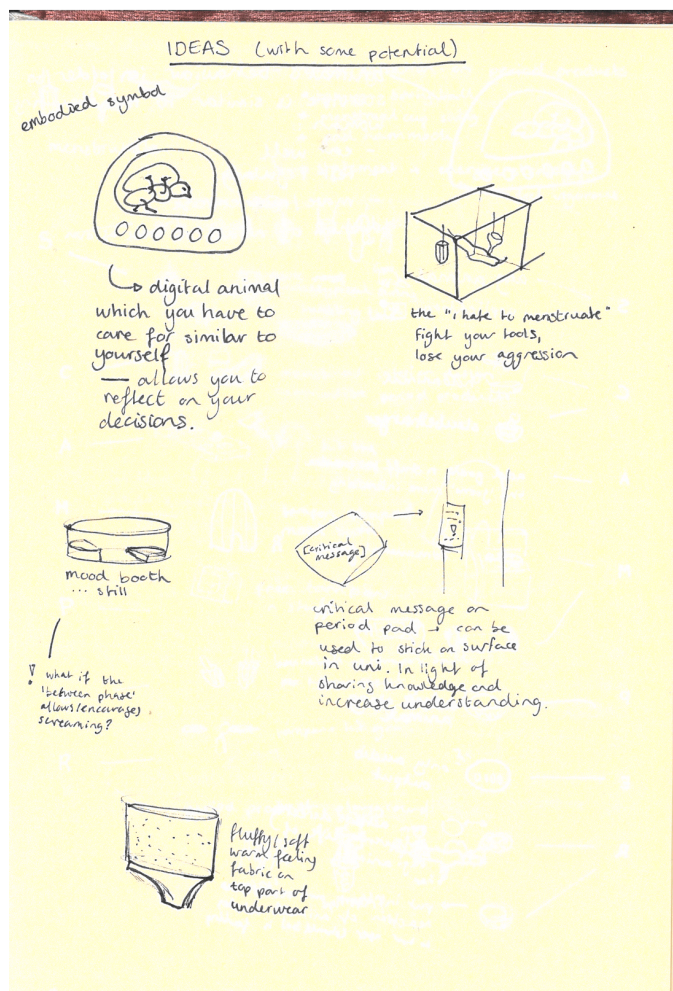 IDEAS (with some potential)
embodied symbol
digital animal
which you have to
care for similar to
yourself
— allows you to
reflect on your
decisions.
the "I hate to menstruate"
Fight your tools,
lose your aggression
mood booth
... still
! what if the
'between phase'
allows/encourages
screaming?
[critical
message]
critical message on
period pad → can be
used to stick on surface
in uni. In light of
sharing knowledge and
increase understanding.
fluffy/soft
warm feeling
fabric on
top part of
underwear